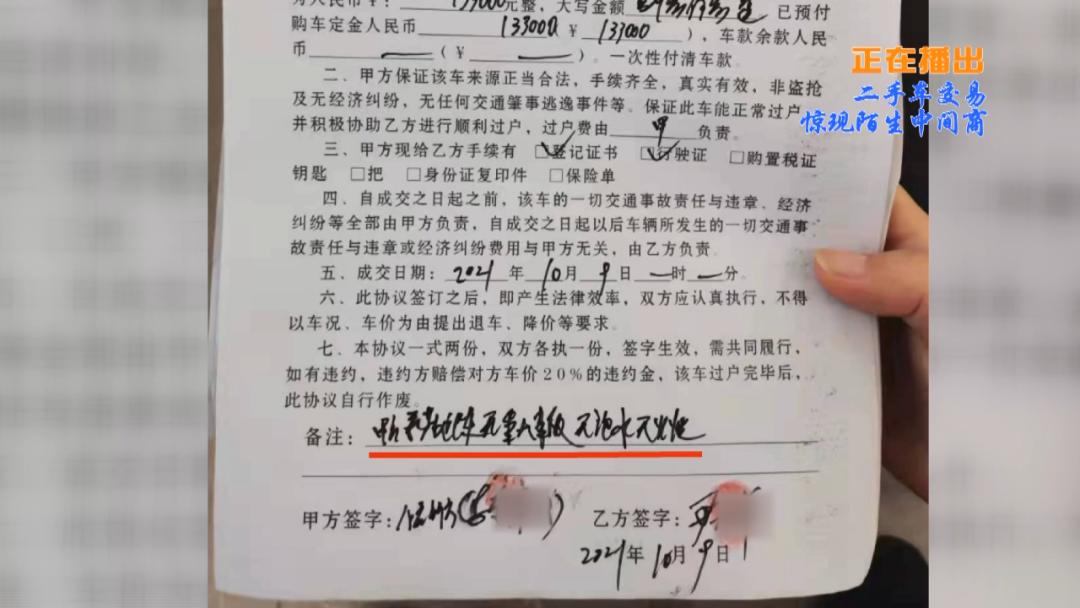 为人民币￥：133000元整，大写金额 已预付
购车定金人民币 133000 ￥ 133000 ），车款余款人民
币 （￥ ）。一次性付清车款。
二、甲方保证该车来源正当合法，手续齐全，真实有效，非盗抢
及无经济纠纷，无任何交通肇事逃逸事件等。保证此车能正常过户，
并积极协助乙方进行顺利过户，过户费由 甲 负责。
三、甲方现给乙方手续有 ☑登记证书 ☑行驶证 □购置税证
钥匙 □把 □身份证复印件 □保险单
四、自成交之日起之前，该车的一切交通事故责任与违章、经济
纠纷等全部由甲方负责，自成交之日起以后车辆所发生的一切交通事
故责任与违章或经济纠纷费用与甲方无关，由乙方负责。
五、成交日期：2021年10月9日一时一分。
六、此协议签订之后，即产生法律效率，双方应认真执行，不得
以车况、车价为由提出退车、降价等要求。
七、本协议一式两份，双方各执一份，签字生效，需共同履行，
如有违约，违约方赔偿对方车价20%的违约金，该车过户完毕后，
此协议自行作废。
备注： 无重大事故 无泡水 无火烧
甲方签字：
乙方签字：
2021年10月9日
正在播出
二手车交易
惊现陌生中间商